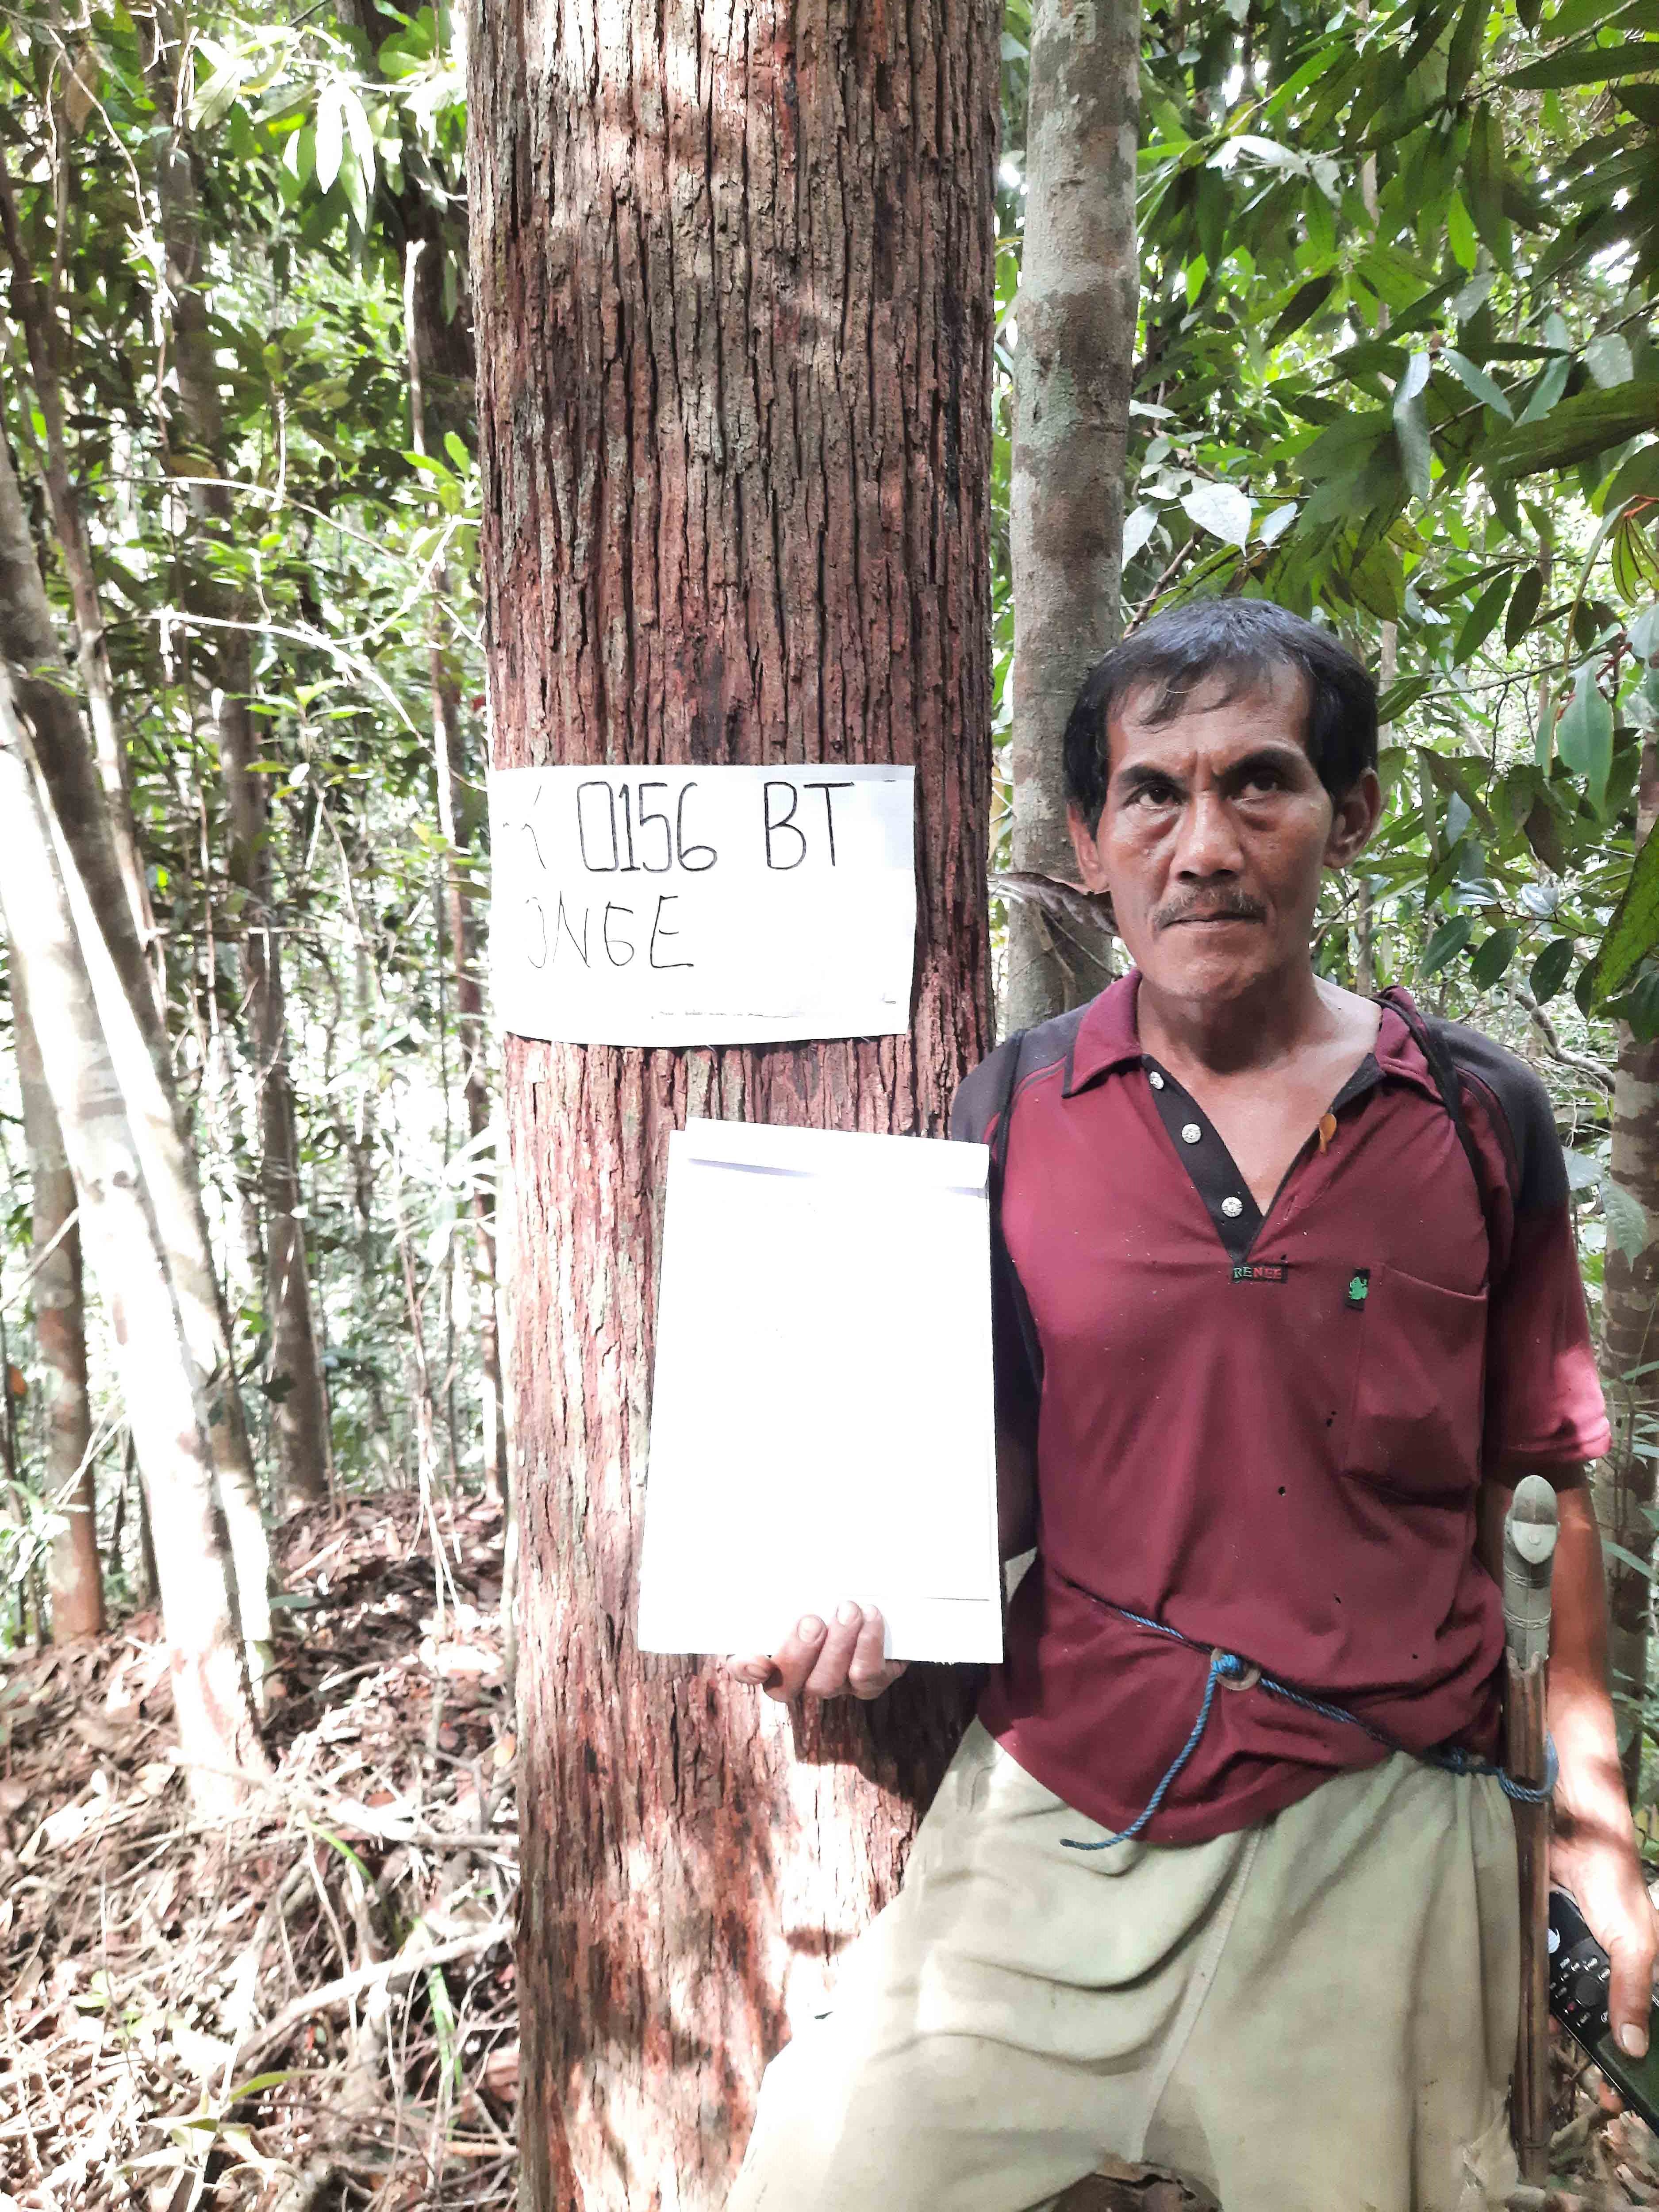 0156 BT
ONGE
RENEE